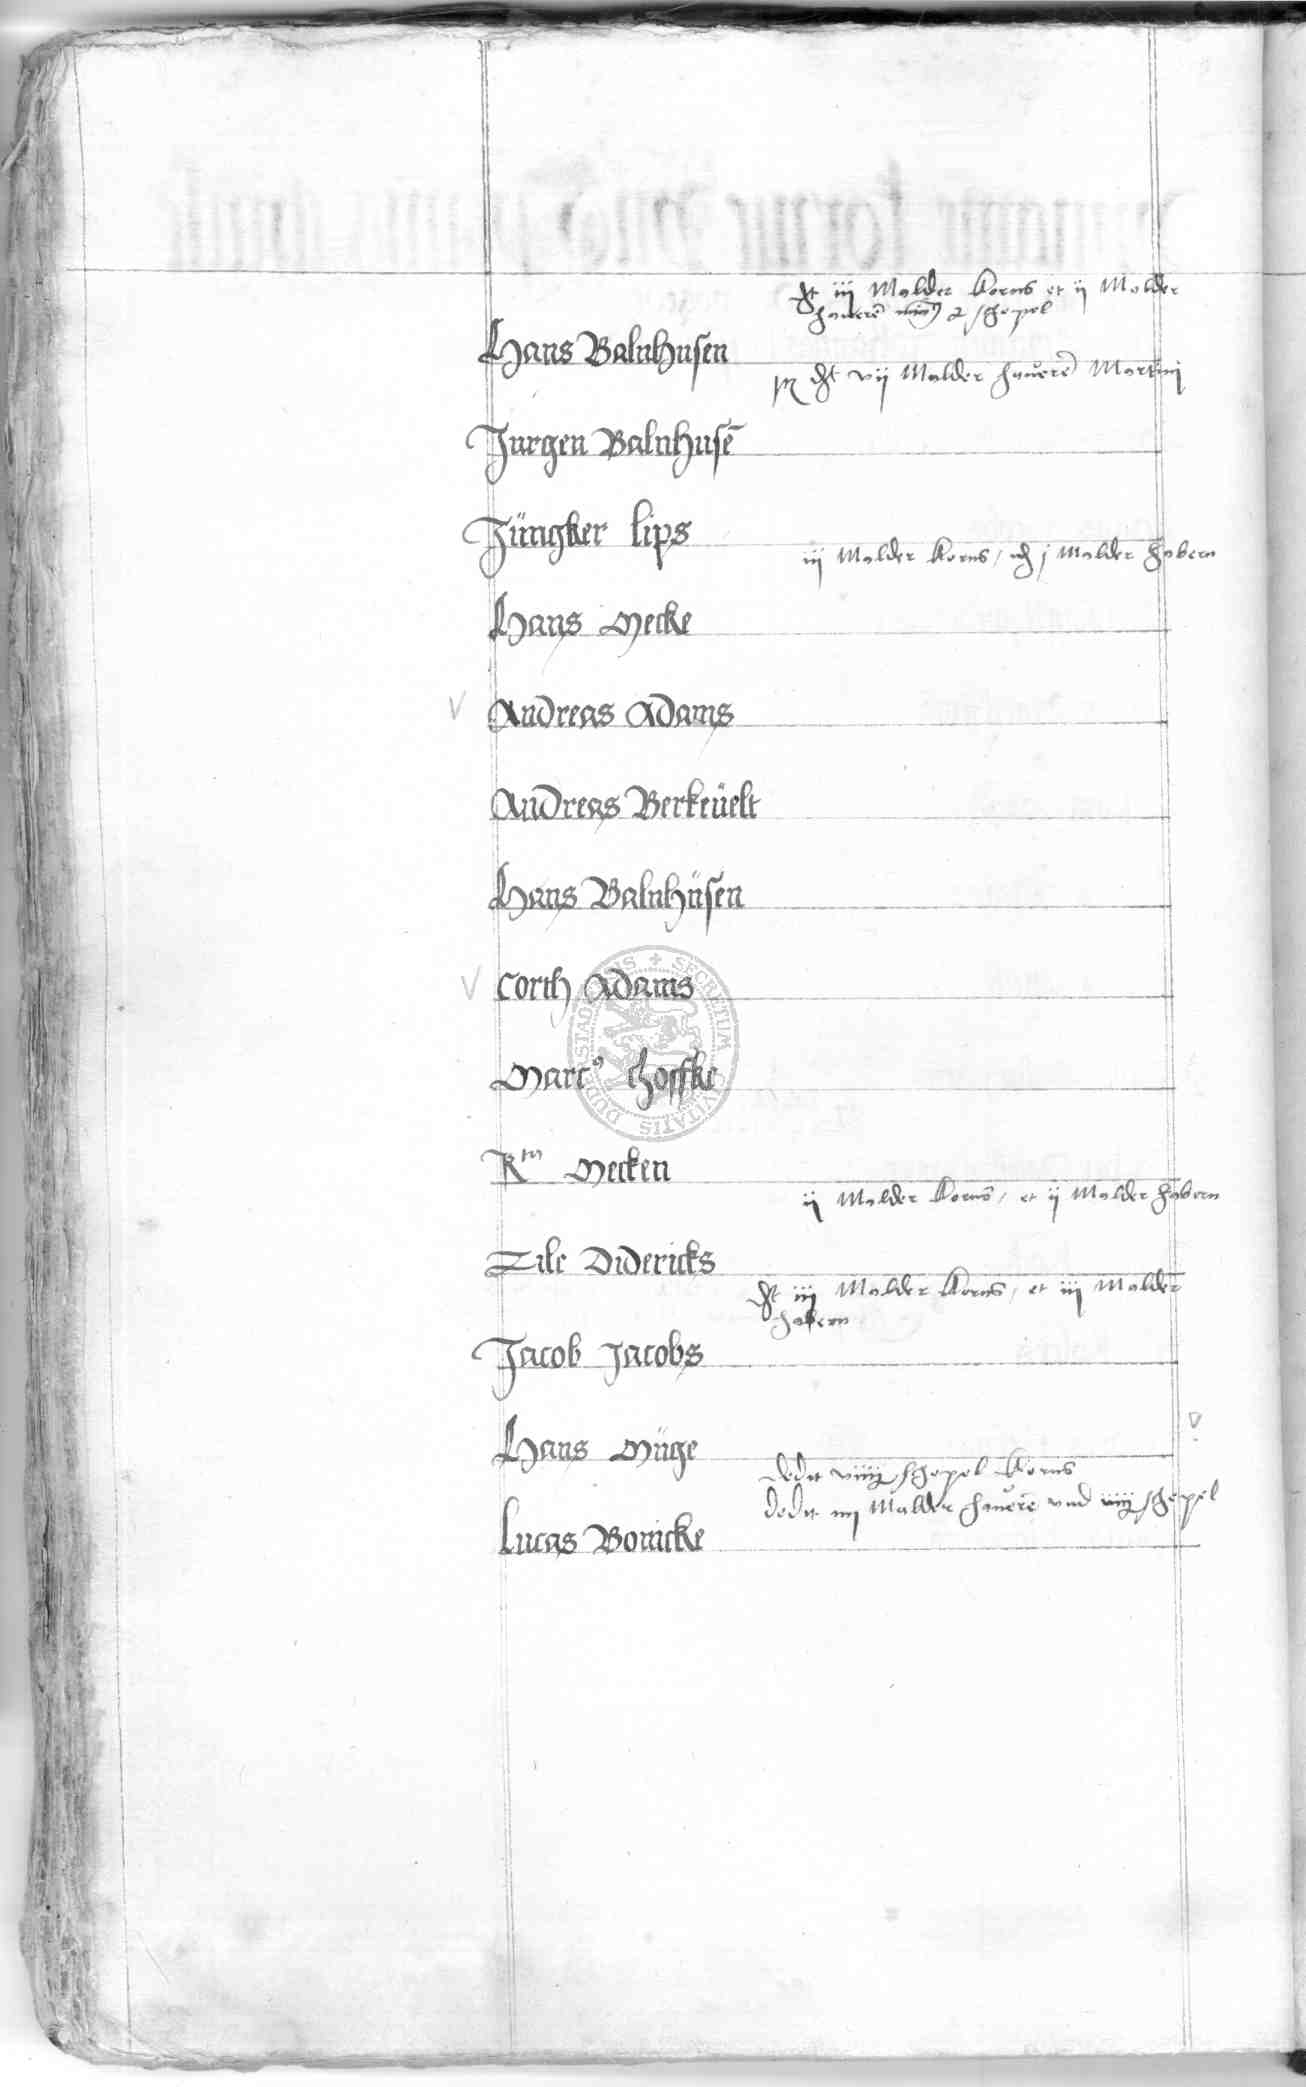 dt iij Malder Korns et ij Malder
haueren min9 2 schepel
Hans Balnhusen
dt vij Malder haueren Martini
Jurgen Balnhusē
Jüngker lips
iij Malder Korns / j Malder habern
Hans Mecke
V Andreas Adams
Andreas Berkeüelt
Hans Balnhüsen
V Corth Adams
Marc9 Choffke
Rm Mecken
ij Malder Korns / et ij Malder habern
Tile Didericks
dt iij Malder Korns / et iij Malder
habern
Jacob Jacobs
Hans Müge
dedit viiij schepel Korns
dedit iiij Malder haueren vnd viiij schepel
Lucas Bonicke
SECRETUM CIVITATIS DUDERSTADENSIS